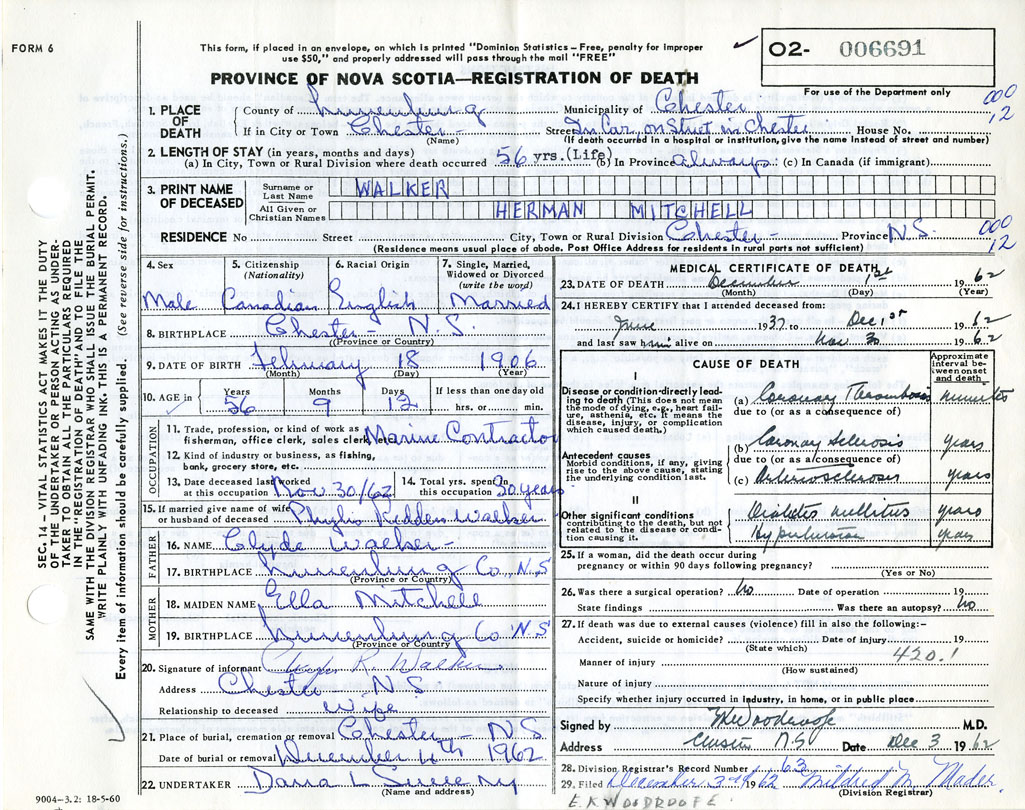 FORM 6
This form, if placed in an envelope, on which is printed "Dominion Statistics – Free, penalty for improper
use $50," and properly addressed will pass through the mail "FREE"
PROVINCE OF NOVA SCOTIA—REGISTRATION OF DEATH
O2- 006691
For use of the Department only
000
12
SEC. 14 — VITAL STATISTICS ACT MAKES IT THE DUTY
OF THE UNDERTAKER OR PERSON ACTING AS UNDER-
TAKER TO OBTAIN ALL THE PARTICULARS REQUIRED
IN THE "REGISTRATION OF DEATH" AND TO FILE THE
SAME WITH THE DIVISION REGISTRAR WHO SHALL ISSUE THE BURIAL PERMIT.
WRITE PLAINLY WITH UNFADING INK. THIS IS A PERMANENT RECORD.
Every item of information should be carefully supplied. (See reverse side for instructions.)
1. PLACE OF DEATH County of Lunenburg Municipality of Chester
If in City or Town Chester Street In Car, on Street in Chester House No.
(Name) (If death occurred in a hospital or institution, give the name instead of street and number)
2. LENGTH OF STAY (in years, months and days)
(a) In City, Town or Rural Division where death occurred 56 yrs. (Life) (b) In Province always (c) In Canada (if immigrant)
3. PRINT NAME OF DECEASED Surname or Last Name WALKER
All Given or Christian Names HERMAN MITCHELL
RESIDENCE No. Street City, Town or Rural Division Chester Province N.S.
000
12
(Residence means usual place of abode. Post Office Address for residents in rural parts not sufficient)
4. Sex 5. Citizenship (Nationality) 6. Racial Origin 7. Single, Married, Widowed or Divorced (write the word)
Male Canadian English Married
8. BIRTHPLACE Chester – N.S.
(Province or Country)
9. DATE OF BIRTH February 18 1906
(Month) (Day) (Year)
10. AGE in Years 56 Months 9 Days 12 If less than one day old hrs. or min.
OCCUPATION
11. Trade, profession, or kind of work as fisherman, office clerk, sales clerk, etc. Marine Contractor
12. Kind of industry or business, as fishing, bank, grocery store, etc.
13. Date deceased last worked at this occupation Nov 30/62 14. Total yrs. spent in this occupation 30 years
15. If married give name of wife or husband of deceased Walker
FATHER
16. NAME Clyde Walker
17. BIRTHPLACE Lunenburg Co. N.S
(Province or Country)
MOTHER
18. MAIDEN NAME Ella Mitchell
19. BIRTHPLACE Lunenburg Co N.S
(Province or Country)
20. Signature of informant R. Walker
Address Chester N.S
Relationship to deceased Wife
21. Place of burial, cremation or removal Chester – N.S
Date of burial or removal December 4th 1962
22. UNDERTAKER Dana L.
(Name and address)
9004—3.2: 18-5-60
MEDICAL CERTIFICATE OF DEATH
23. DATE OF DEATH December 1st 1962
(Month) (Day) (Year)
24. I HEREBY CERTIFY that I attended deceased from:
June 1937 to Dec 1st 1962
and last saw him alive on Nov 30 1962
CAUSE OF DEATH Approximate interval between onset and death
I
Disease or condition directly leading to death (This does not mean the mode of dying, e.g., heart failure, asthenia, etc. It means the disease, injury, or complication which caused death.)
(a) Coronary Thrombosis minutes
due to (or as a consequence of)
Antecedent causes
Morbid conditions, if any, giving rise to the above cause, stating the underlying condition last.
(b) Coronary Sclerosis years
due to (or as a consequence of)
(c) Arteriosclerosis years
II
Other significant conditions
contributing to the death, but not related to the disease or condition causing it.
Diabetes mellitus years
Hypertension years
25. If a woman, did the death occur during
pregnancy or within 90 days following pregnancy?
(Yes or No)
26. Was there a surgical operation? No Date of operation 19
State findings Was there an autopsy? No
27. If death was due to external causes (violence) fill in also the following:-
Accident, suicide or homicide? Date of injury 19
(State which)
420.1
Manner of injury
(How sustained)
Nature of injury
Specify whether injury occurred in industry, in home, or in public place
Signed by Woodroofe M.D.
Address Chester N.S Date Dec 3 1962
28. Division Registrar's Record Number 63
29. Filed December 3rd 1962 Mildred M. Mader
(Division Registrar)
E.K. WOODROOFE.